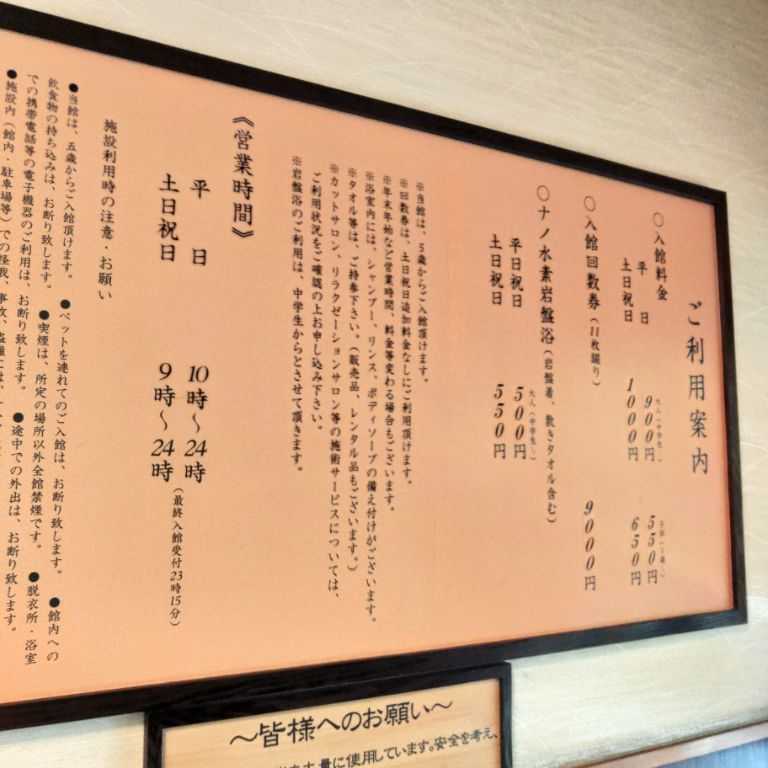 ご利用案内
〇入館料金
大人（中学生〜）
平　日　900円　550円
土日祝日　1000円　650円
〇入館回数券（11枚綴り）　9000円
〇ナノ水素岩盤浴（岩盤着、敷きタオル含む）
大人（中学生〜）
平日祝日　500円
土日祝日　550円
※当館は、5歳からご入館頂けます。
※回数券は、土日祝日追加料金なしにご利用頂けます。
※年末年始など営業時間、料金等変わる場合もございます。
※浴室内には、シャンプー、リンス、ボディソープの備え付けがございます。
※タオル等は、ご持参下さい。（販売品、レンタル品もございます。）
※カットサロン、リラクゼーションサロン等の施術サービスについては、
ご利用状況をご確認の上お申し込み下さい。
※岩盤浴のご利用は、中学生からとさせて頂きます。
《営業時間》
平　日　10時〜24時
土日祝日　9時〜24時
（最終入館受付23時15分）
施設利用時の注意・お願い
●当館は、五歳からご入館頂けます。　●ペットを連れてのご入館は、お断り致します。　●館内への
飲食物の持ち込みは、お断り致します。　●喫煙は、所定の場所以外全館禁煙です。　●脱衣所・浴室
での携帯電話等の電子機器のご利用は、お断り致します。　●途中での外出は、お断り致します。
●施設内（館内・駐車場等）での怪我、事故、盗難には、
〜皆様へのお願い〜
量に使用しています。安全を考え、